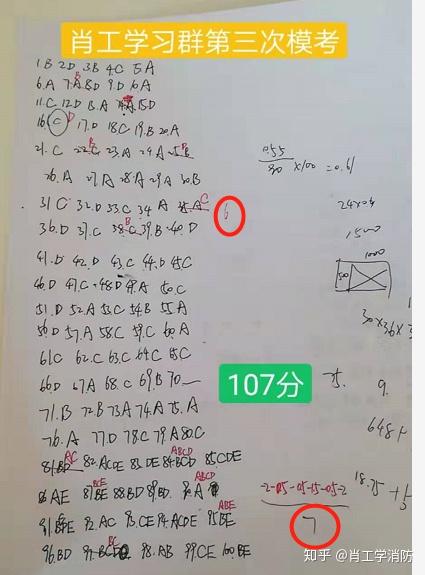 肖工学习群第三次模考
1.B 2.D 3.B 4.C 5.A
6.A 7.A B 8.D 9.D 10.A
11.C 12.D 13.A 14.A 15.D
16.C D 17.D 18.C 19.B 20.A
21.C 22.C B 23.A 24.A 25.B
26.A 27.A 28.A 29.A 30.B
31.C 32.D 33.C 34.A 35.A C
6
36.D 37.C 38.C B 39.B 40.D
41.D 42.D 43.C 44.D 45.C
46.D 47.C 48.D 49.A 50.C
51.D 52.A 53.C 54.B 55.A
56.D 57.A 58.C 59.C 60.A
61.C 62.C 63.C 64.C 65.C
66.D 67.A 68.C 69.B 70.
71.B 72.B 73.A 74.A 75.A
76.A 77.D 78.C 79.A 80.C
81.BD AC 82.ACDE 83.DE 84.BCD ABCD 85.CDE
86.AE 87.BE BCE 88.BD 89.BD 90.A ABCD
91.BE 92.AC 93.CE 94.ACDE 95.BE ABE
96.BD 97. BC 98.AB 99.CE 100.BE
0.55
×100=0.61
24×04
1500
1000
30×36×
107分
9.
648+
18.75+
-2-0.5-0.5-1.5-0.5-2
7
知乎 @肖工学消防